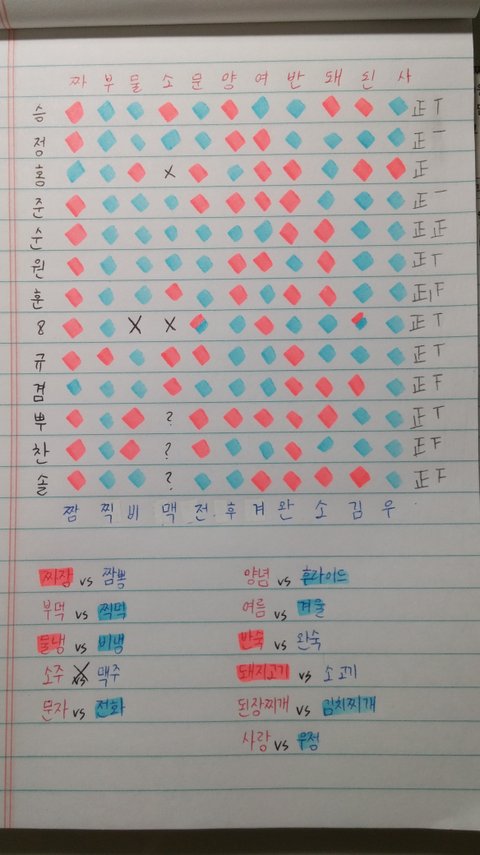 짜 부 물 소 문 양 여 반 돼 된 사
승 正丅
정 正一
홈 X 正
준 正一
순 正正
원 正丅
훈 正F
8 X X 正丅
규 正丅
겸 正F
뿌 ? 正丅
찬 ? 正F
솔 ? 正F
짬 찍 비 맥 전 후 겨 완 소 김 우
짜장 vs 짬뽕
부먹 vs 찍먹
물냉 vs 비냉
소주 vs 맥주
문자 vs 전화
양념 vs 후라이드
여름 vs 겨울
반숙 vs 완숙
돼지고기 vs 소고기
된장찌개 vs 김치찌개
사랑 vs 우정